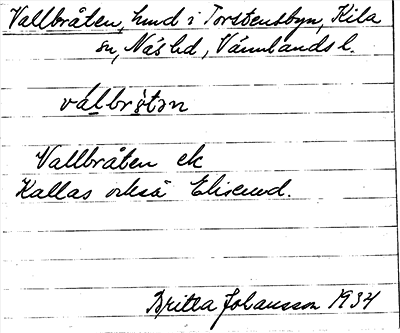 Vallbråten, hmd i Torstensbyn, Kila
sn, Näs hd, Värmlands l.
Vallbråten ek
Kallas också Elisemd.
Britta Johansson 1934